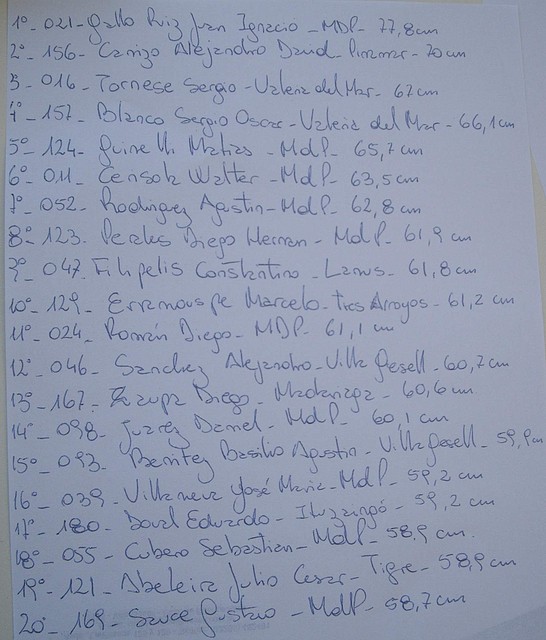 1º_021_Gallo Ruiz Juan Ignacio_MDP_77,8cm
2º_156_Canizo Alejandro David_Pinamar_70cm
3_016_Tornese Sergio_Valeria del Mar_67cm
4º_157_Blanco Sergio Oscar_Valeria del Mar_66,1cm
5º_124_Guinelli Matias_MdP_65,7cm
6º_011_Censola Walter_MdP_63,5cm
7º_052_Rodriguez Agustin_MdP_62,8cm
8º_123_Perales Diego Hernan_MdP_61,9cm
9º_047_Filipelis Constantino_Lanus_61,8cm
10º_129_Erramouspe Marcelo_Tres Arroyos_61,2cm
11º_024_Román Diego_MDP_61,1cm
12º_046_Sanchez Alejandro_Villa Gesell_60,7cm
13º_167_Diego_60,6cm
14º_098_Juarez Daniel_MdP_60,1cm
15º_093_Benitez Basilio Agustin_Villa Gesell_59,9cm
16º_039_Villanueva José Maria_MdP_59,2cm
17º_180_Eduardo_Ituzaingó_59,2cm
18º_055_Cubero Sebastian_MdP_58,9cm.
19º_121_Abeleira Julio Cesar_Tigre_58,9cm
20º_169_Sauce Gustavo_MdP_58,7cm